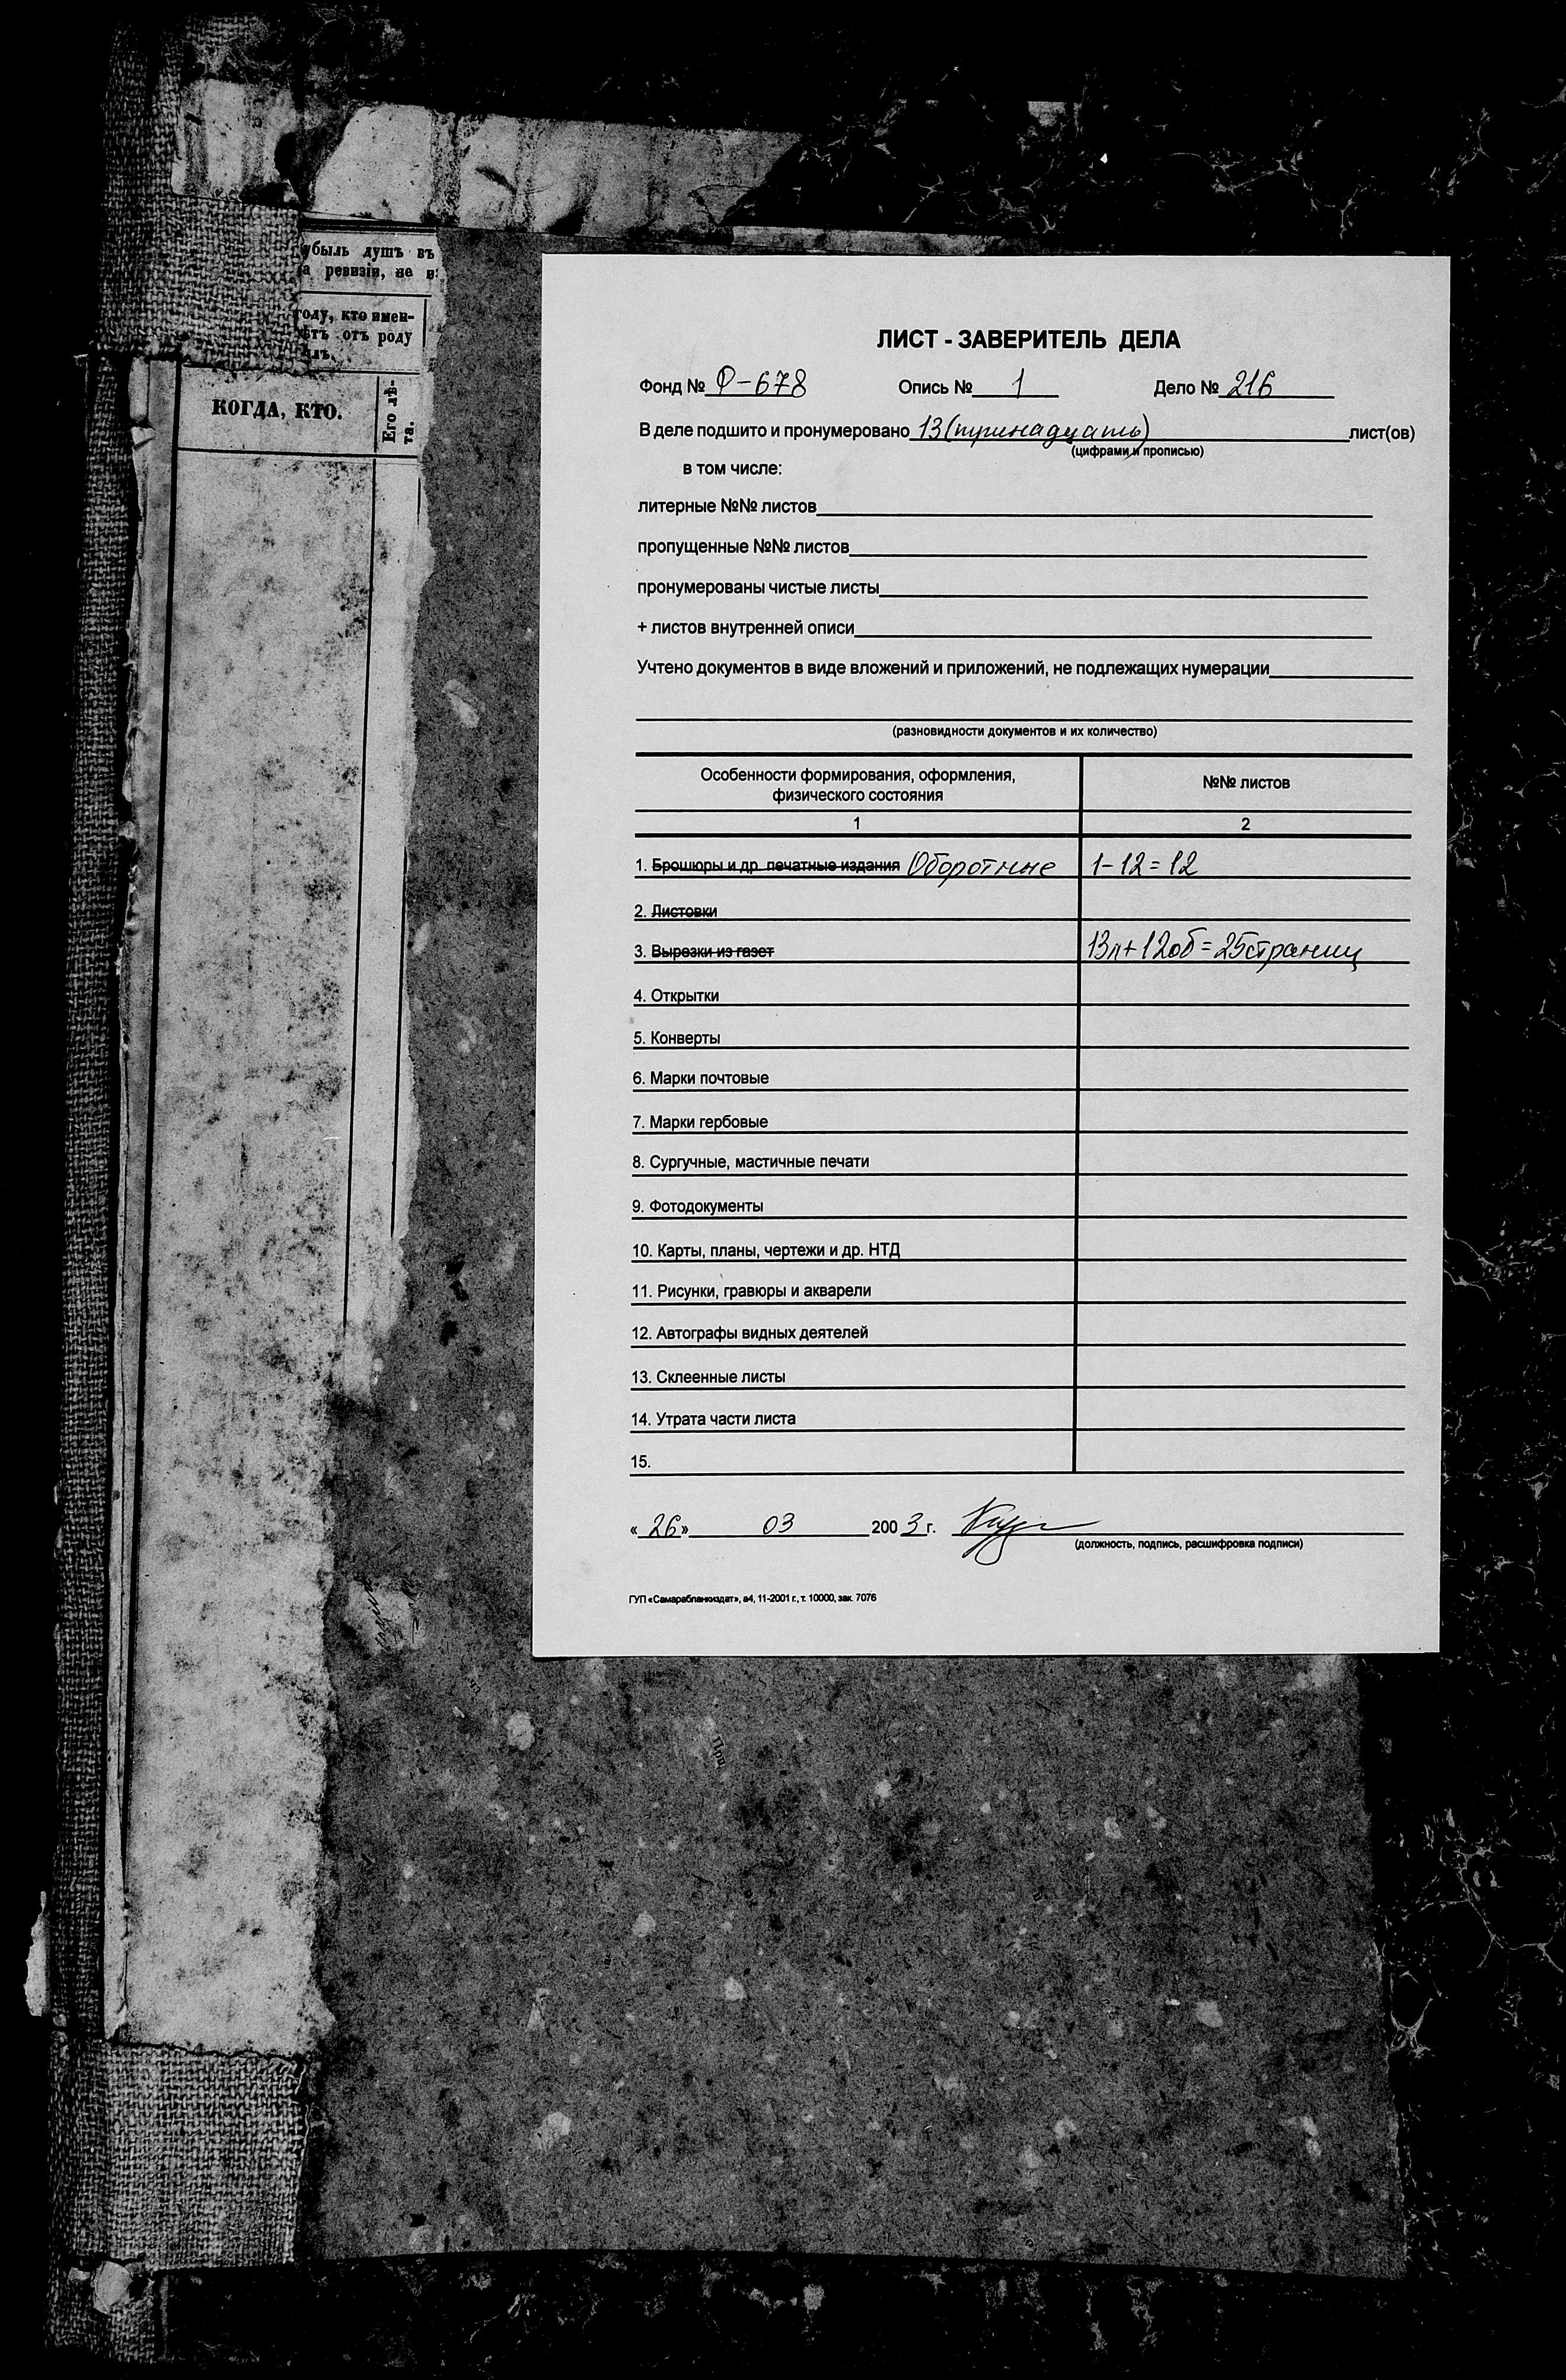 быль душъ въ
а ревизіи, не и
году, кто имен-
ѣтъ отъ роду
лъ.
КОГДА, КТО.
Его лѣ-
та.
ЛИСТ - ЗАВЕРИТЕЛЬ ДЕЛА
Фонд № Ф-678 Опись № 1 Дело № 216
В деле подшито и пронумеровано 13 (тринадцать) лист(ов)
(цифрами и прописью)
в том числе:
литерные №№ листов
пропущенные №№ листов
пронумерованы чистые листы
+ листов внутренней описи
Учтено документов в виде вложений и приложений, не подлежащих нумерации
(разновидности документов и их количество)
Особенности формирования, оформления, №№ листов
физического состояния
1 2
1. Брошюры и др. печатные издания Оборотные 1-12=12
2. Листовки
3. Вырезки из газет 13л+12об=25страниц
4. Открытки
5. Конверты
6. Марки почтовые
7. Марки гербовые
8. Сургучные, мастичные печати
9. Фотодокументы
10. Карты, планы, чертежи и др. НТД
11. Рисунки, гравюры и акварели
12. Автографы видных деятелей
13. Склеенные листы
14. Утрата части листа
15.
«26» 03 2003 г.
(должность, подпись, расшифровка подписи)
ГУП «Самарабланкиздат», а4, 11-2001 г., т. 10000, зак. 7076
При